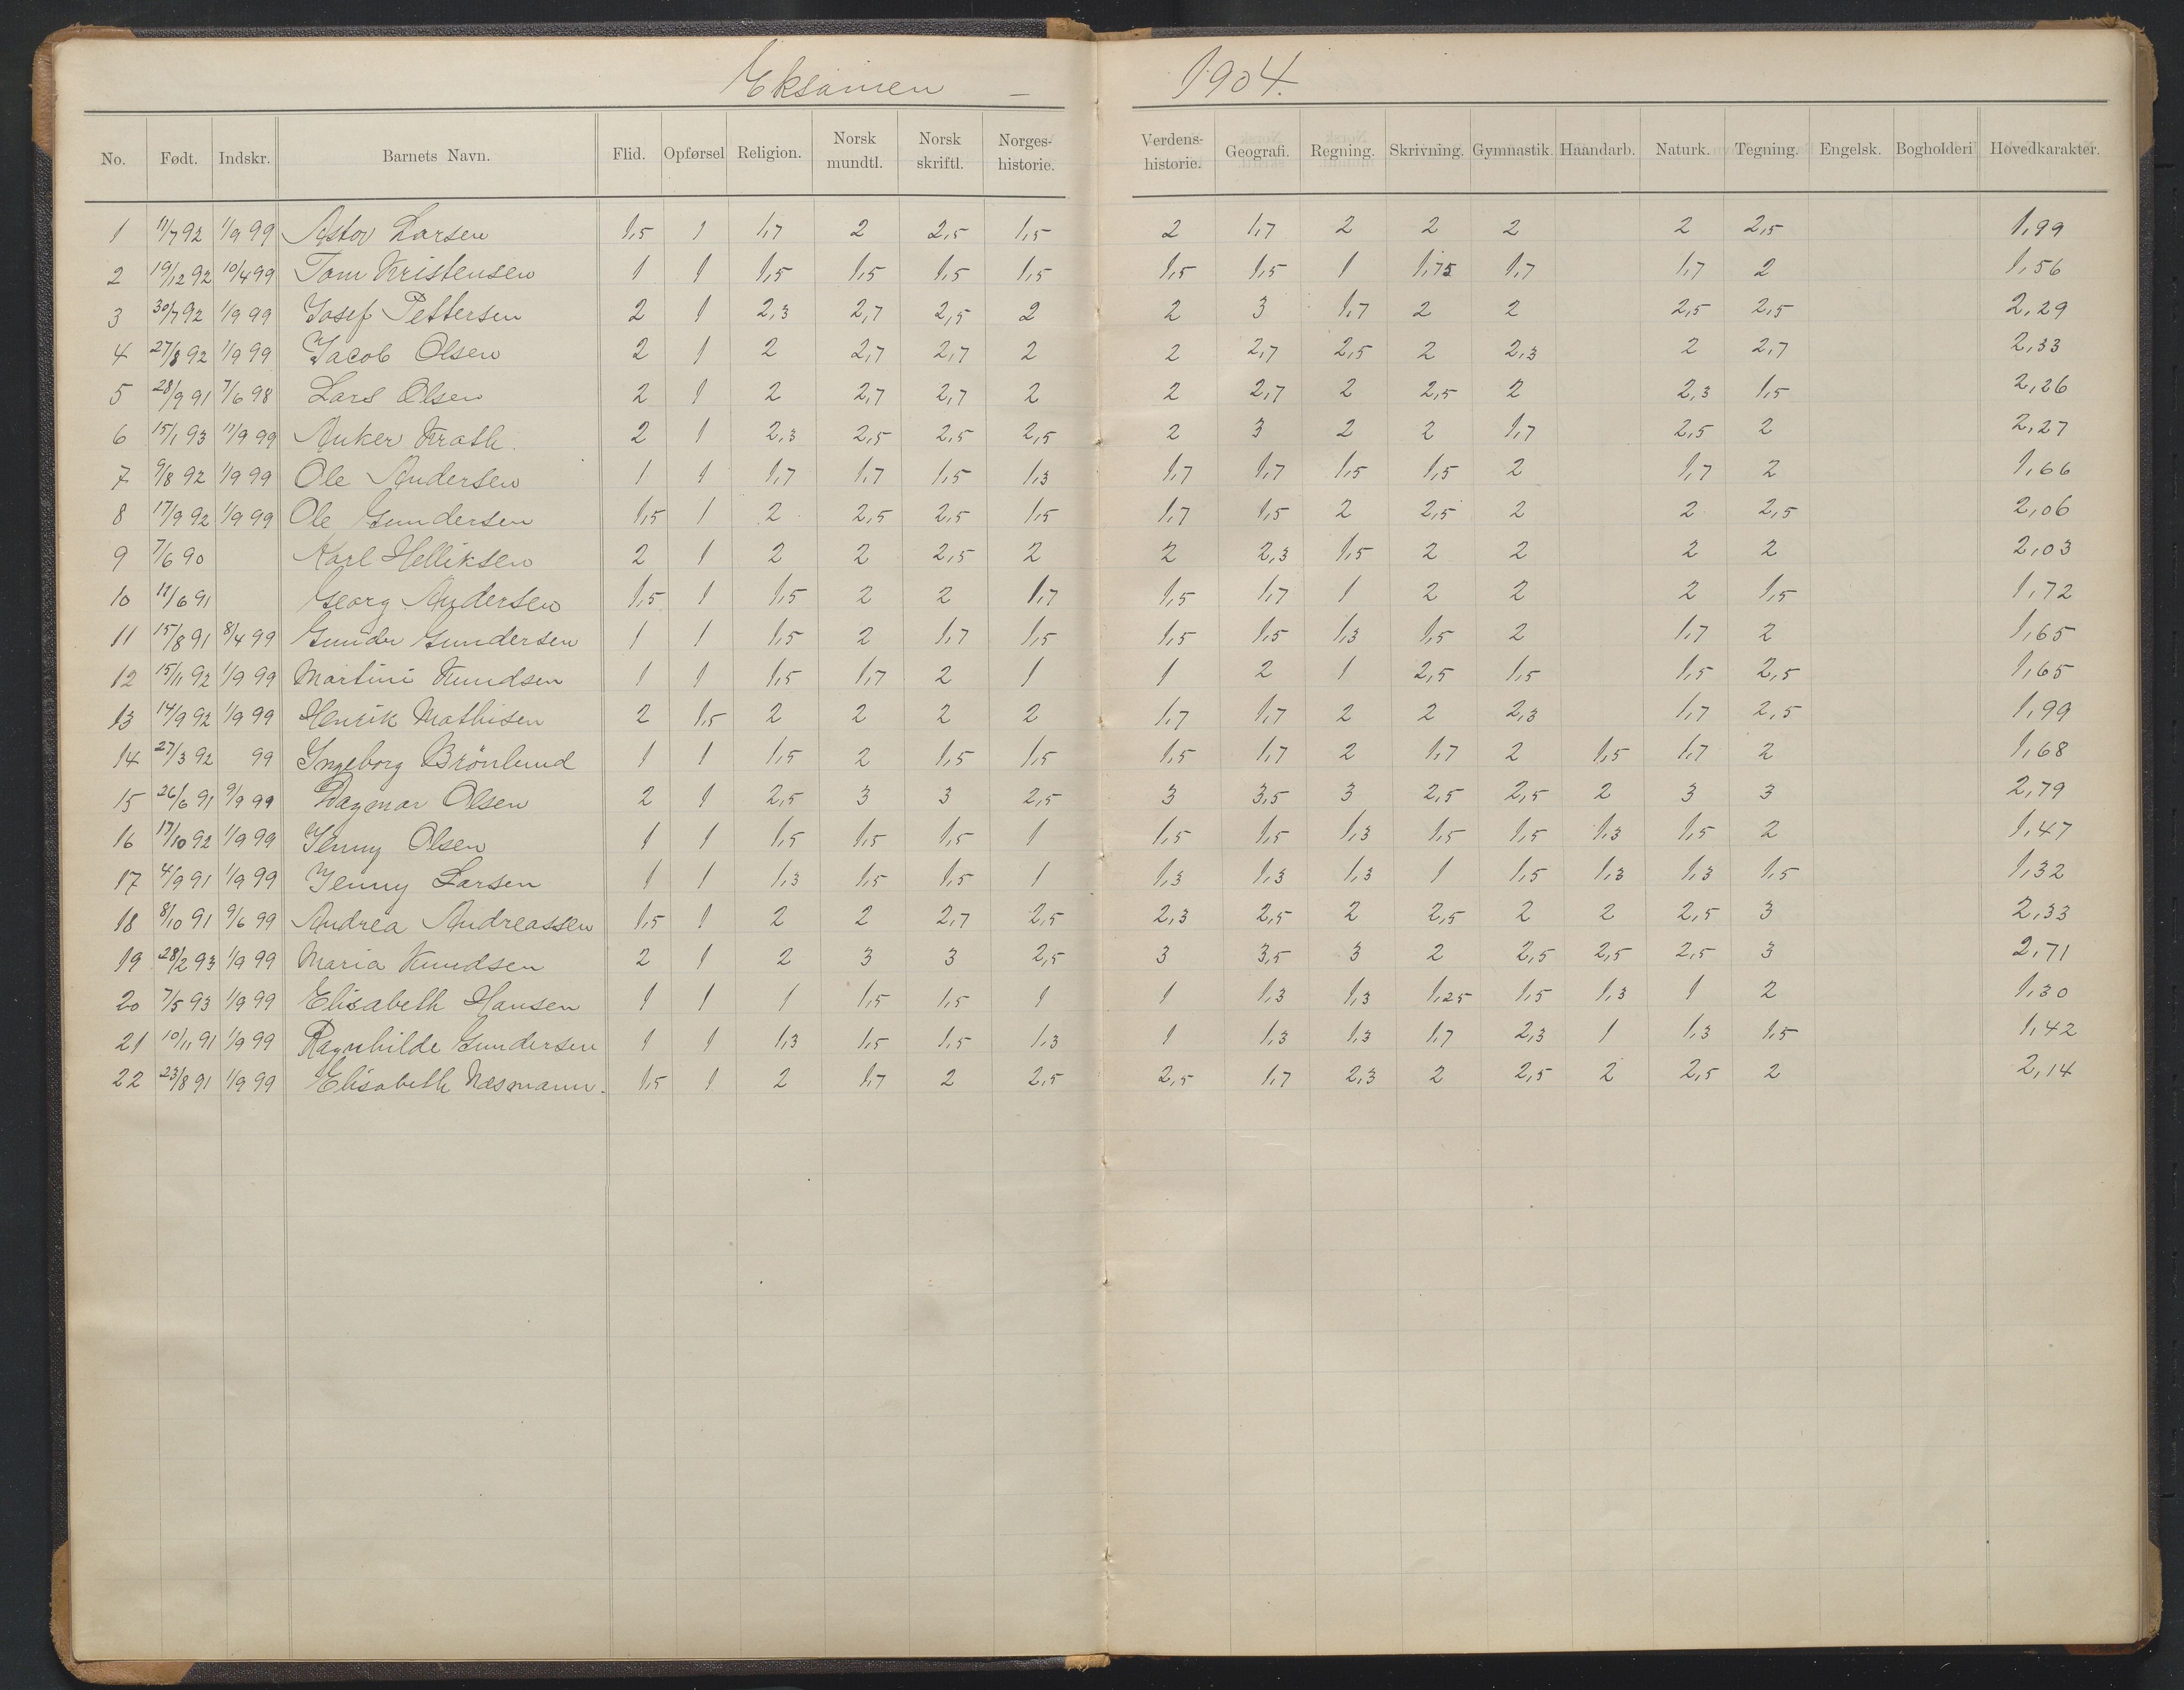 Eksamen – 1904.
No. Født. Indskr. Barnets Navn. Flid. Opførsel Religion. Norsk mundtl. Norsk skriftl. Norges-historie. Verdens-historie. Geografi. Regning. Skrivning. Gymnastik. Haandarb. Naturk. Tegning. Engelsk. Bogholderi Hovedkarakter.
1 11/7 92 1/9 99 Astor Larsen 1,5 1 1,7 2 2,5 1,5 2 1,7 2 2 2 2 2,5 1,99
2 19/12 92 10/4 99 Tom Kristensen 1 1 1,5 1,5 1,5 1,5 1,5 1,5 1 1,75 1,7 1,7 2 1,56
3 30/7 92 1/9 99 Josef Pettersen 2 1 2,3 2,7 2,5 2 2 3 1,7 2 2 2,5 2,5 2,29
4 27/8 92 1/9 99 Jacob Olsen 2 1 2 2,7 2,7 2 2 2,7 2,5 2 2,3 2 2,7 2,33
5 28/9 91 7/6 98 Lars Olsen 2 1 2 2,7 2,7 2 2 2,7 2 2,5 2 2,3 1,5 2,26
6 15/1 93 11/9 99 Anker Krath 2 1 2,3 2,5 2,5 2,5 2 3 2 2 1,7 2,5 2 2,27
7 9/8 92 1/9 99 Ole Andersen 1 1 1,7 1,7 1,5 1,3 1,7 1,7 1,5 1,5 2 1,7 2 1,66
8 17/9 92 1/9 99 Ole Gundersen 1,5 1 2 2,5 2,5 1,5 1,7 1,5 2 2,5 2 2 2,5 2,06
9 7/6 90 Karl Helliksen 2 1 2 2 2,5 2 2 2,3 1,5 2 2 2 2 2,03
10 17/6 91 Georg Andersen 1,5 1 1,5 2 2 1,7 1,5 1,7 1 2 2 2 1,5 1,72
11 15/8 91 8/4 99 Gunder Gundersen 1 1 1,5 2 1,7 1,5 1,5 1,5 1,3 1,5 2 1,7 2 1,65
12 15/11 92 1/9 99 Martini Knudsen 1 1 1,5 1,7 2 1 1 2 1 2,5 1,5 1,5 2,5 1,65
13 14/9 92 1/9 99 Henrik Mathisen 2 1,5 2 2 2 2 1,7 1,7 2 2 2,3 1,7 2,5 1,99
14 27/3 92 99 Ingeborg Brönlund 1 1 1,5 2 1,5 1,5 1,5 1,7 2 1,7 2 1,5 1,7 2 1,68
15 26/6 91 9/9 99 Dagmar Olsen 2 1 2,5 3 3 2,5 3 3,5 3 2,5 2,5 2 3 3 2,79
16 17/10 92 1/9 99 Jenny Olsen 1 1 1,5 1,5 1,5 1 1,5 1,5 1,3 1,5 1,5 1,3 1,5 2 1,47
17 4/9 91 1/9 99 Jenny Larsen 1 1 1,3 1,5 1,5 1 1,3 1,3 1,3 1 1,5 1,3 1,3 1,5 1,32
18 8/10 91 9/6 99 Andrea Andreassen 1,5 1 2 2 2,7 2,5 2,3 2,5 2 2,5 2 2 2,5 3 2,33
19 28/2 93 1/9 99 Maria Knudsen 2 1 2 3 3 2,5 3 3,5 3 2 2,5 2,5 2,5 3 2,71
20 7/5 93 1/9 99 Elisabeth Hansen 1 1 1 1,5 1,5 1 1 1,3 1,3 1,25 1,5 1,3 1 2 1,30
21 10/11 91 1/9 99 Ragnhilde Gundersen 1 1 1,3 1,5 1,5 1,3 1 1,3 1,3 1,7 2,3 1 1,3 1,5 1,42
22 23/8 91 1/9 99 Elisabeth Næsmann. 1,5 1 2 1,7 2 2,5 2,5 1,7 2,3 2 2,5 2 2,5 2 2,14